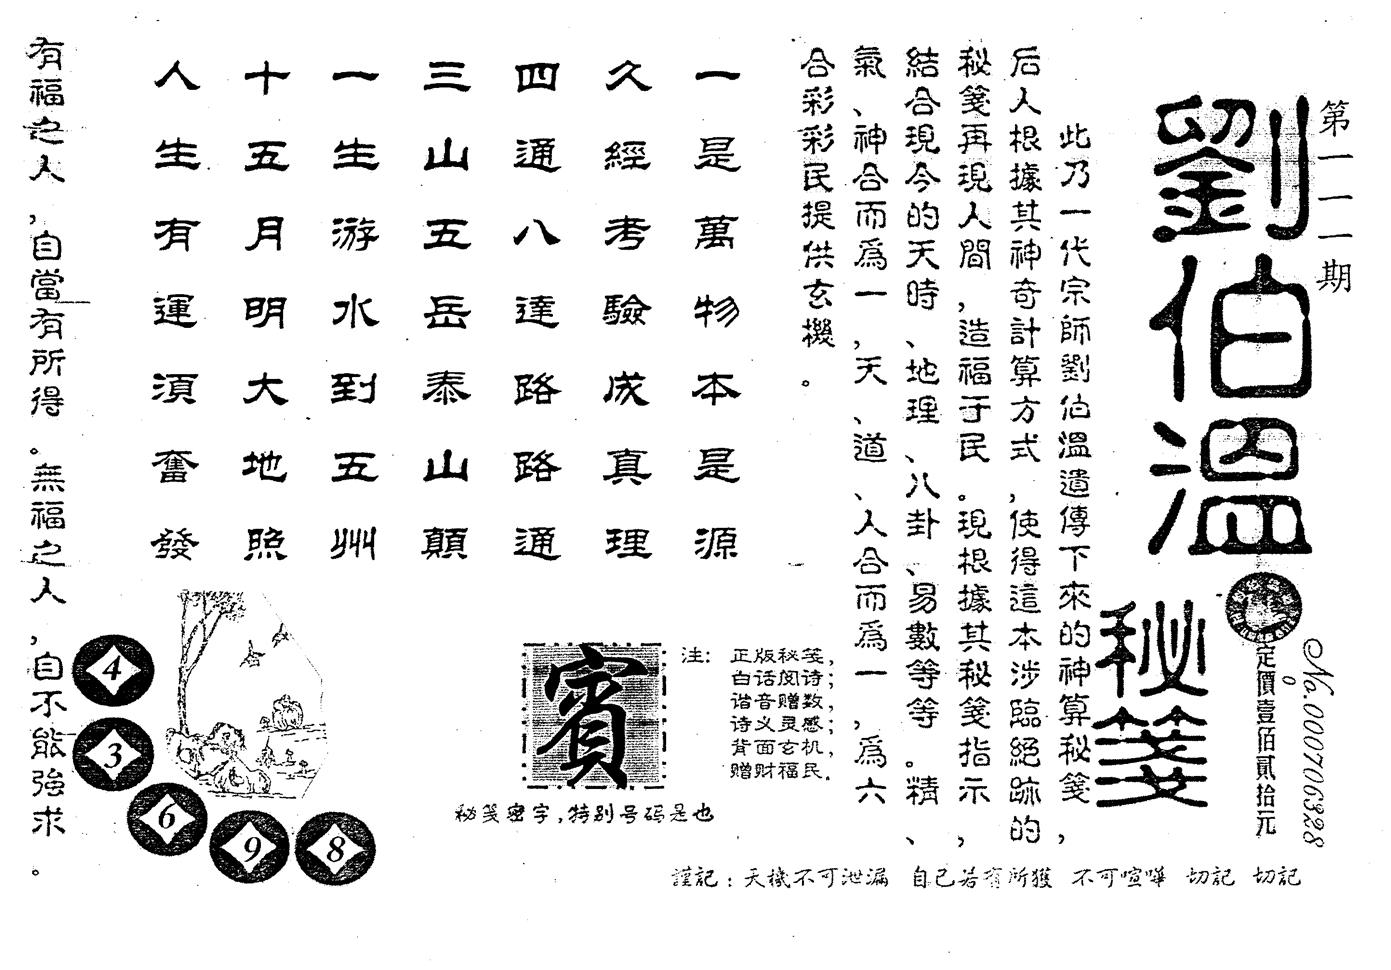 第一一一期
劉伯溫
秘箋
定價壹佰貳拾元
No.000706328
此乃一代宗師劉伯溫遺傳下來的神算秘箋，
后人根據其神奇計算方式，使得這本涉臨絕跡的
秘箋再現人間，造福于民。現根據其秘箋指示，
結合現今的天時、地理、八卦、易數等等。精、
氣、神合而為一，天、道、人合而為一，為六
合彩彩民提供玄機。
一是萬物本是源
久經考驗成真理
四通八達路路通
三山五岳泰山顛
一生游水到五州
十五月明大地照
人生有運須奮發
有福之人，自當有所得。無福之人，自不能強求。
注：正版秘笺，
白话阅诗；
谐音赠数，
诗义灵感；
背面玄机，
赠财福民．
賓
秘笺密字，特别号码是也
4
3
6
9
8
謹記：天機不可泄漏　自己若有所獲　不可喧嘩　切記　切記